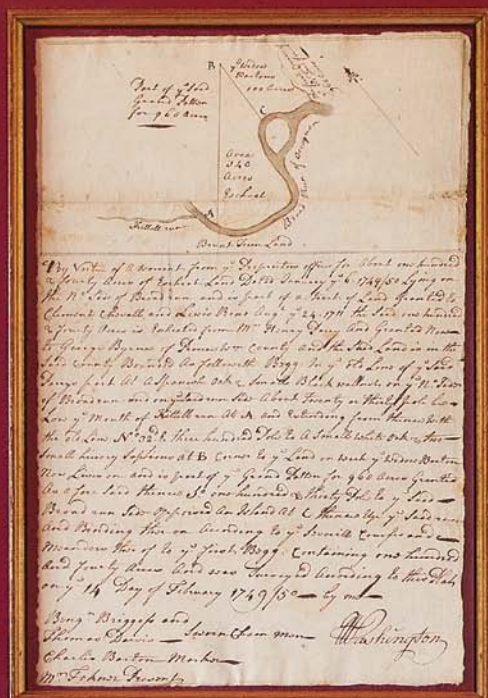 B
yᵉ Widow
Bartons
100 Acres
Part of yᵉ Said
Grand Patten
for 960 Acres
C
Area
240
Acres
Escheat
A
Kettell run
Broad Run
Brent Town Land
By Virtue of A Warrant from yᵉ Proprietors office for About one hundred
& forty Acres of Escheat Land Dated January yᵉ 6 1749/50 Lying on
the Nᵒ Side of Broad run and is part of a Tract of Land Granted to
Clement Chevell and Lewis Augᵗ yᵉ 24 1711 the said one hundred
& forty Acres is Escheated from Mʳ Henry and Granted Now
to George Byrne of County and the Said Land is in the
Said County Bounded As followeth Begg: In yᵉ Old Line of yᵉ Said
part At A Spanish Oak & Small Black wallnut on yᵉ Nᵒ Side
of Broad run and on yᵉ Island run Side About Twenty or thirty pole be
Low yᵉ Mouth of Kettell run At A and Extending from thence with
the Old Line Nᵒ 32ᵈ three hundred Pole to A Small white Oak & two
Small hicory Saplens at B Corner to yᵉ Land on wich yᵉ Widow Barton
Now Lives on and is part of yᵉ Grand Patten for 960 Acres Granted
As Afore Said thence Sᵒ one hundred & thirty Pole to yᵉ Said
Broad run Side Opposed An Island At C thence Up yᵉ Said run
And Binding there on According to yᵉ Severall Courses and
Meanders there of to yᵉ first Begg: Containing one hundred
And forty Acres And was Surveyed According to this Plat
on yᵉ 14 Day of Febuary 1749/50 by me
Benjⁿ Briggess and
Thomas Davis Sworn Chain Men
GWashington
Charles Barton Marker
Mʳ Present